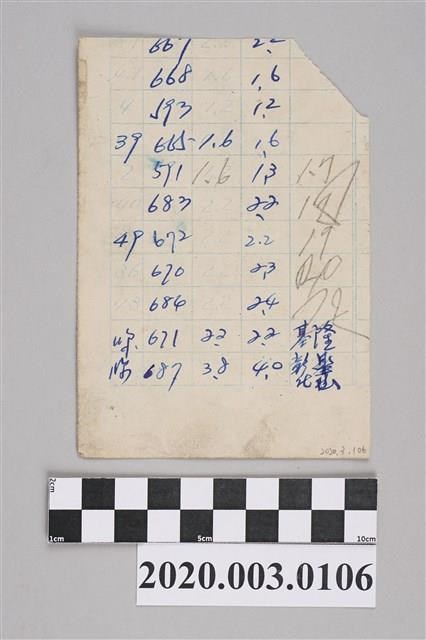 667 2.2
668 1.6
593 1.2
39 665 1.6 1.6
591 1.6 1.3 1.7
683 2.2 18
49 672 2.2 19
670 2.3 20
684 2.4
671 2.2 2.2 基隆
687 3.8 4.0 彰化
2020.3.106
2cm
1cm 5cm 10cm
2020.003.0106